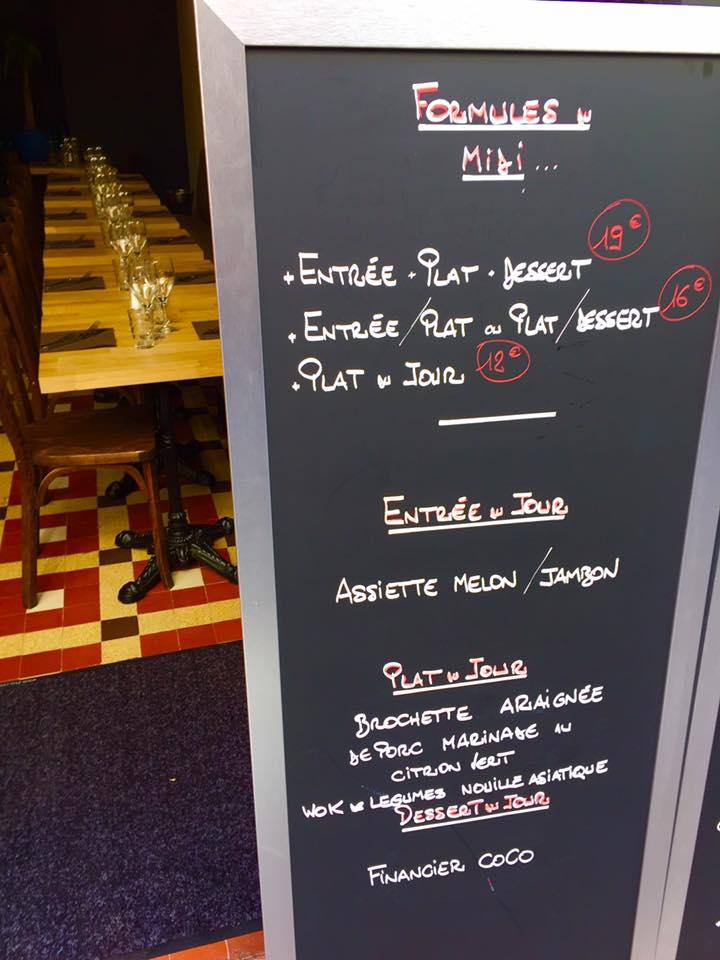 FORMULES du
MIDI...
+ ENTRÉE + PLAT + DESSERT 19€
+ ENTRÉE/PLAT ou PLAT/DESSERT 16€
+ PLAT du JOUR 12€
ENTRÉE du JOUR
ASSIETTE MELON / JAMBON
PLAT du JOUR
BROCHETTE ARAIGNÉE
DE PORC MARINADE au
CITRON VERT
WOK de LEGUMES NOUILLE ASIATIQUE
DESSERT du JOUR
FINANCIER COCO